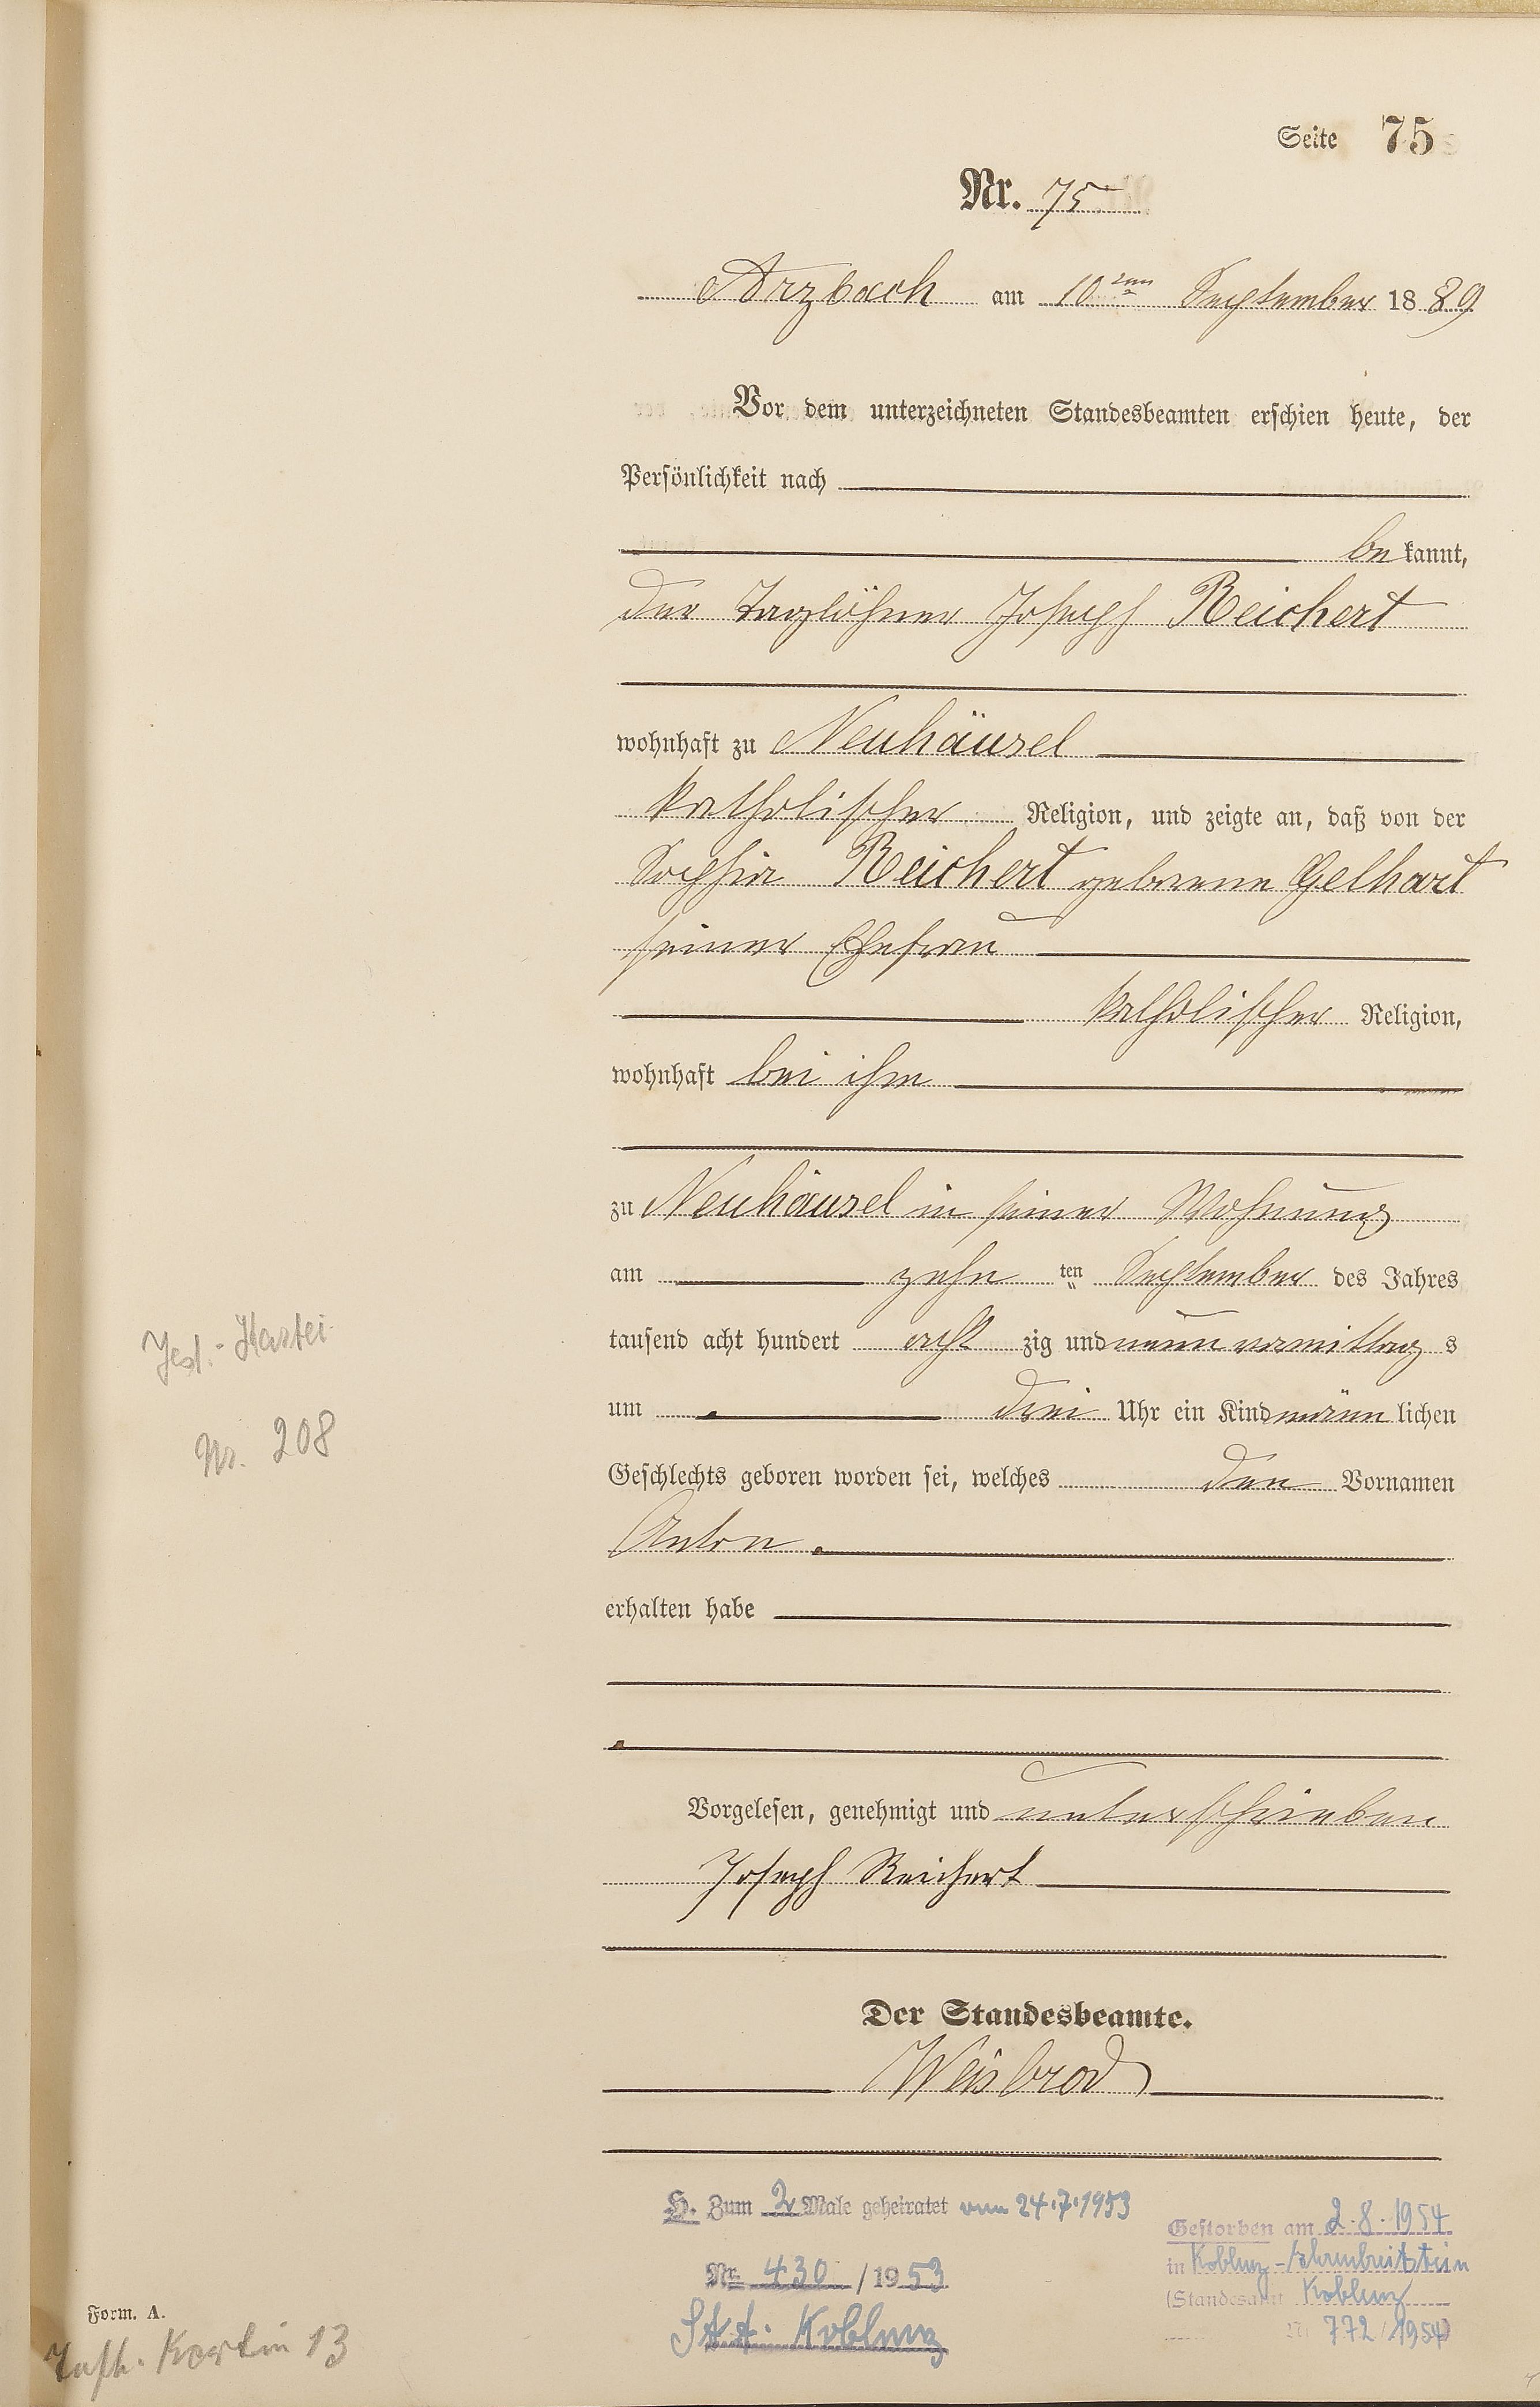 Seite 75
Nr. 75
Arzbach am 10ten September 1889
Vor dem unterzeichneten Standesbeamten erschien heute, der
Persönlichkeit nach
bekannt,
der Taglöhner Joseph Reichert
wohnhaft zu Neuhäusel
katholischer Religion, und zeigte an, daß von der
Sophia Reichert geborene Gelhart
seiner Ehefrau
katholischer Religion,
wohnhaft bei ihm
zu Neuhäusel in seiner Wohnung
am zehn ten September des Jahres
tausend acht hundert acht zig und neun vormittags
um drei Uhr ein Kind männlichen
Geschlechts geboren worden sei, welches den Vornamen
Anton.
erhalten habe
Vorgelesen, genehmigt und unterschrieben
Joseph Reichert
Der Standesbeamte.
Weisbrod
H. Zum 2 Male geheiratet am 24.7.1953
Nr. 430/1953
StA. Koblenz
Gestorben am 2.8.1954
in Koblenz-Ehrenbreitstein
(Standesamt Koblenz
Nr 772/1954)
Kartei
Nr. 208
Form. A.
13